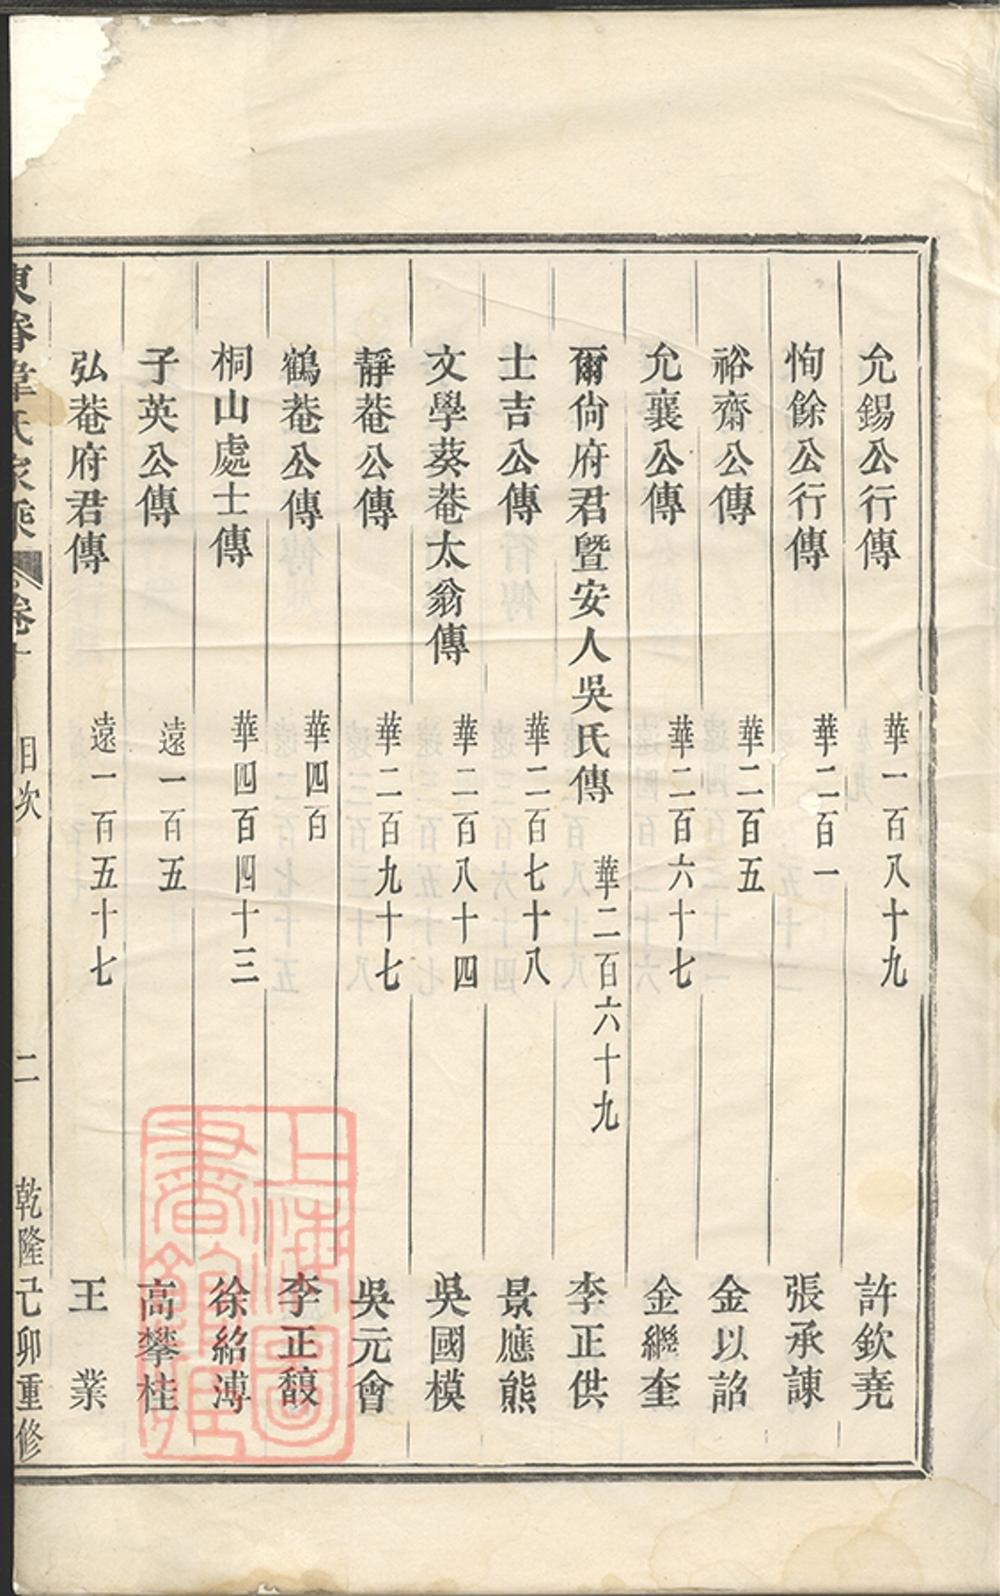 允錫公行傳 華一百八十九 許欽堯
恂餘公行傳 華二百一 張承諫
裕齋公傳 華二百五 金以詔
允襄公傳 華二百六十七 金繼奎
爾尙府君曁安人吳氏傳 華二百六十九 李正供
士吉公傳 華二百七十八 景應熊
文學葵菴太翁傳 華二百八十四 吳國模
靜菴公傳 華二百九十七 吳元會
鶴菴公傳 華四百 李正馥
桐山處士傳 華四百四十三 徐紹溥
子英公傳 遠一百五 高攀桂
弘菴府君傳 遠一百五十七 王業
東眷韋氏家乘 卷十 目次 二 乾隆己卯重修
上海圖書館藏